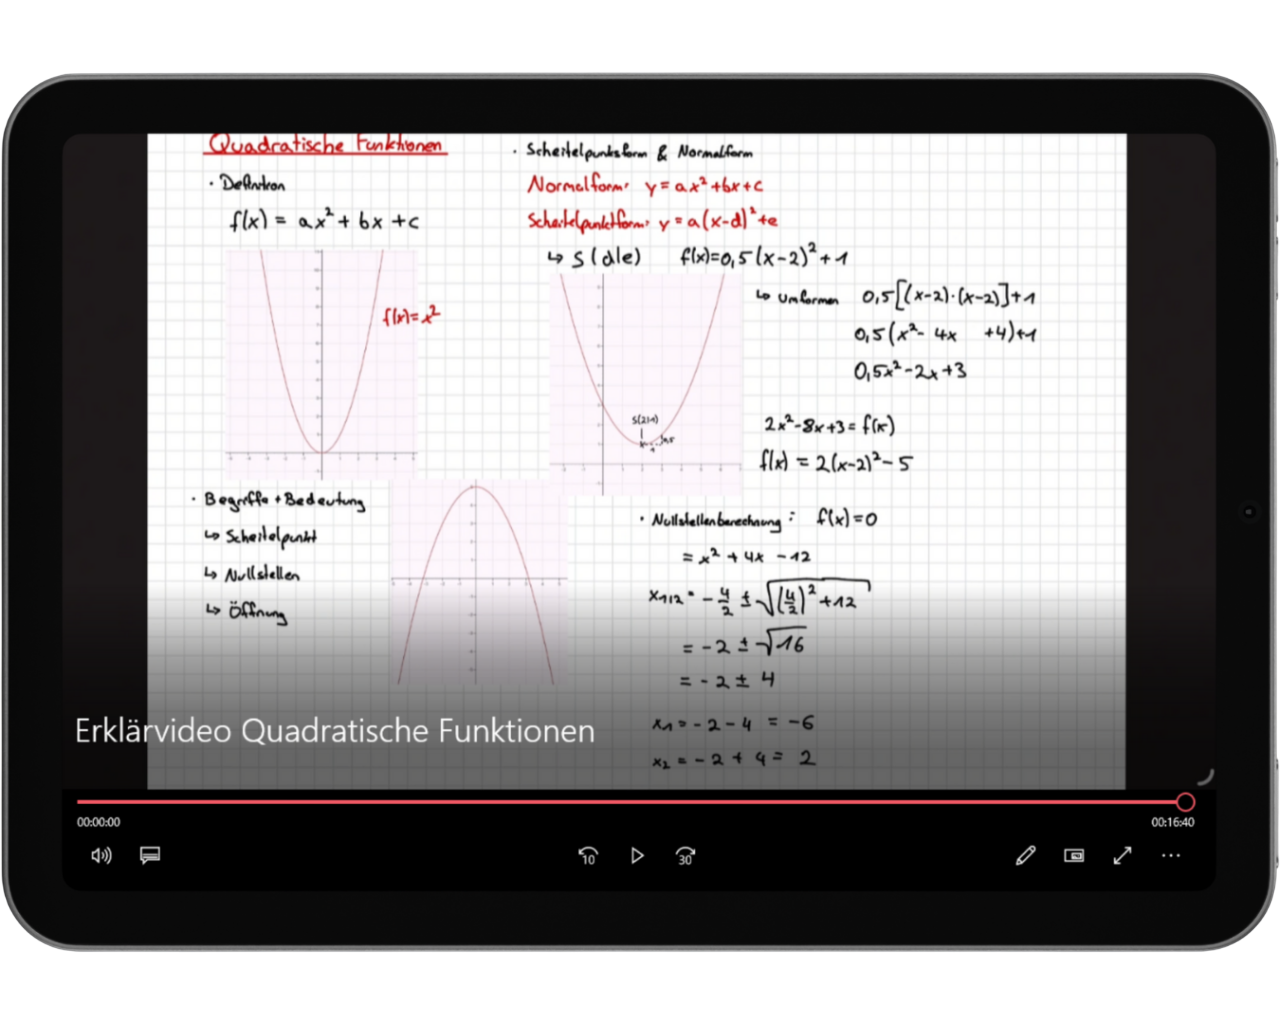 Quadratische Funktionen
· Definition
f(x) = ax² + bx + c
f(x)=x²
· Begriffe + Bedeutung
↳ Scheitelpunkt
↳ Nullstellen
↳ Öffnung
· Scheitelpunktsform & Normalform
Normalform: y = ax² + bx + c
Scheitelpunktform: y = a(x-d)² + e
↳ S(d|e) f(x)=0,5(x-2)² + 1
↳ umformen 0,5[(x-2)·(x-2)]+1
0,5(x² - 4x +4)+1
0,5x² - 2x + 3
S(2|1)
2x² - 8x + 3 = f(x)
f(x) = 2(x-2)² - 5
· Nullstellenberechnung: f(x)=0
= x² + 4x - 12
x1/2 = - 4/2 ± √((4/2)² + 12)
= - 2 ± √16
= - 2 ± 4
x1 = - 2 - 4 = - 6
x2 = - 2 + 4 = 2
Erklärvideo Quadratische Funktionen
00:00:00
00:16:40
10
30